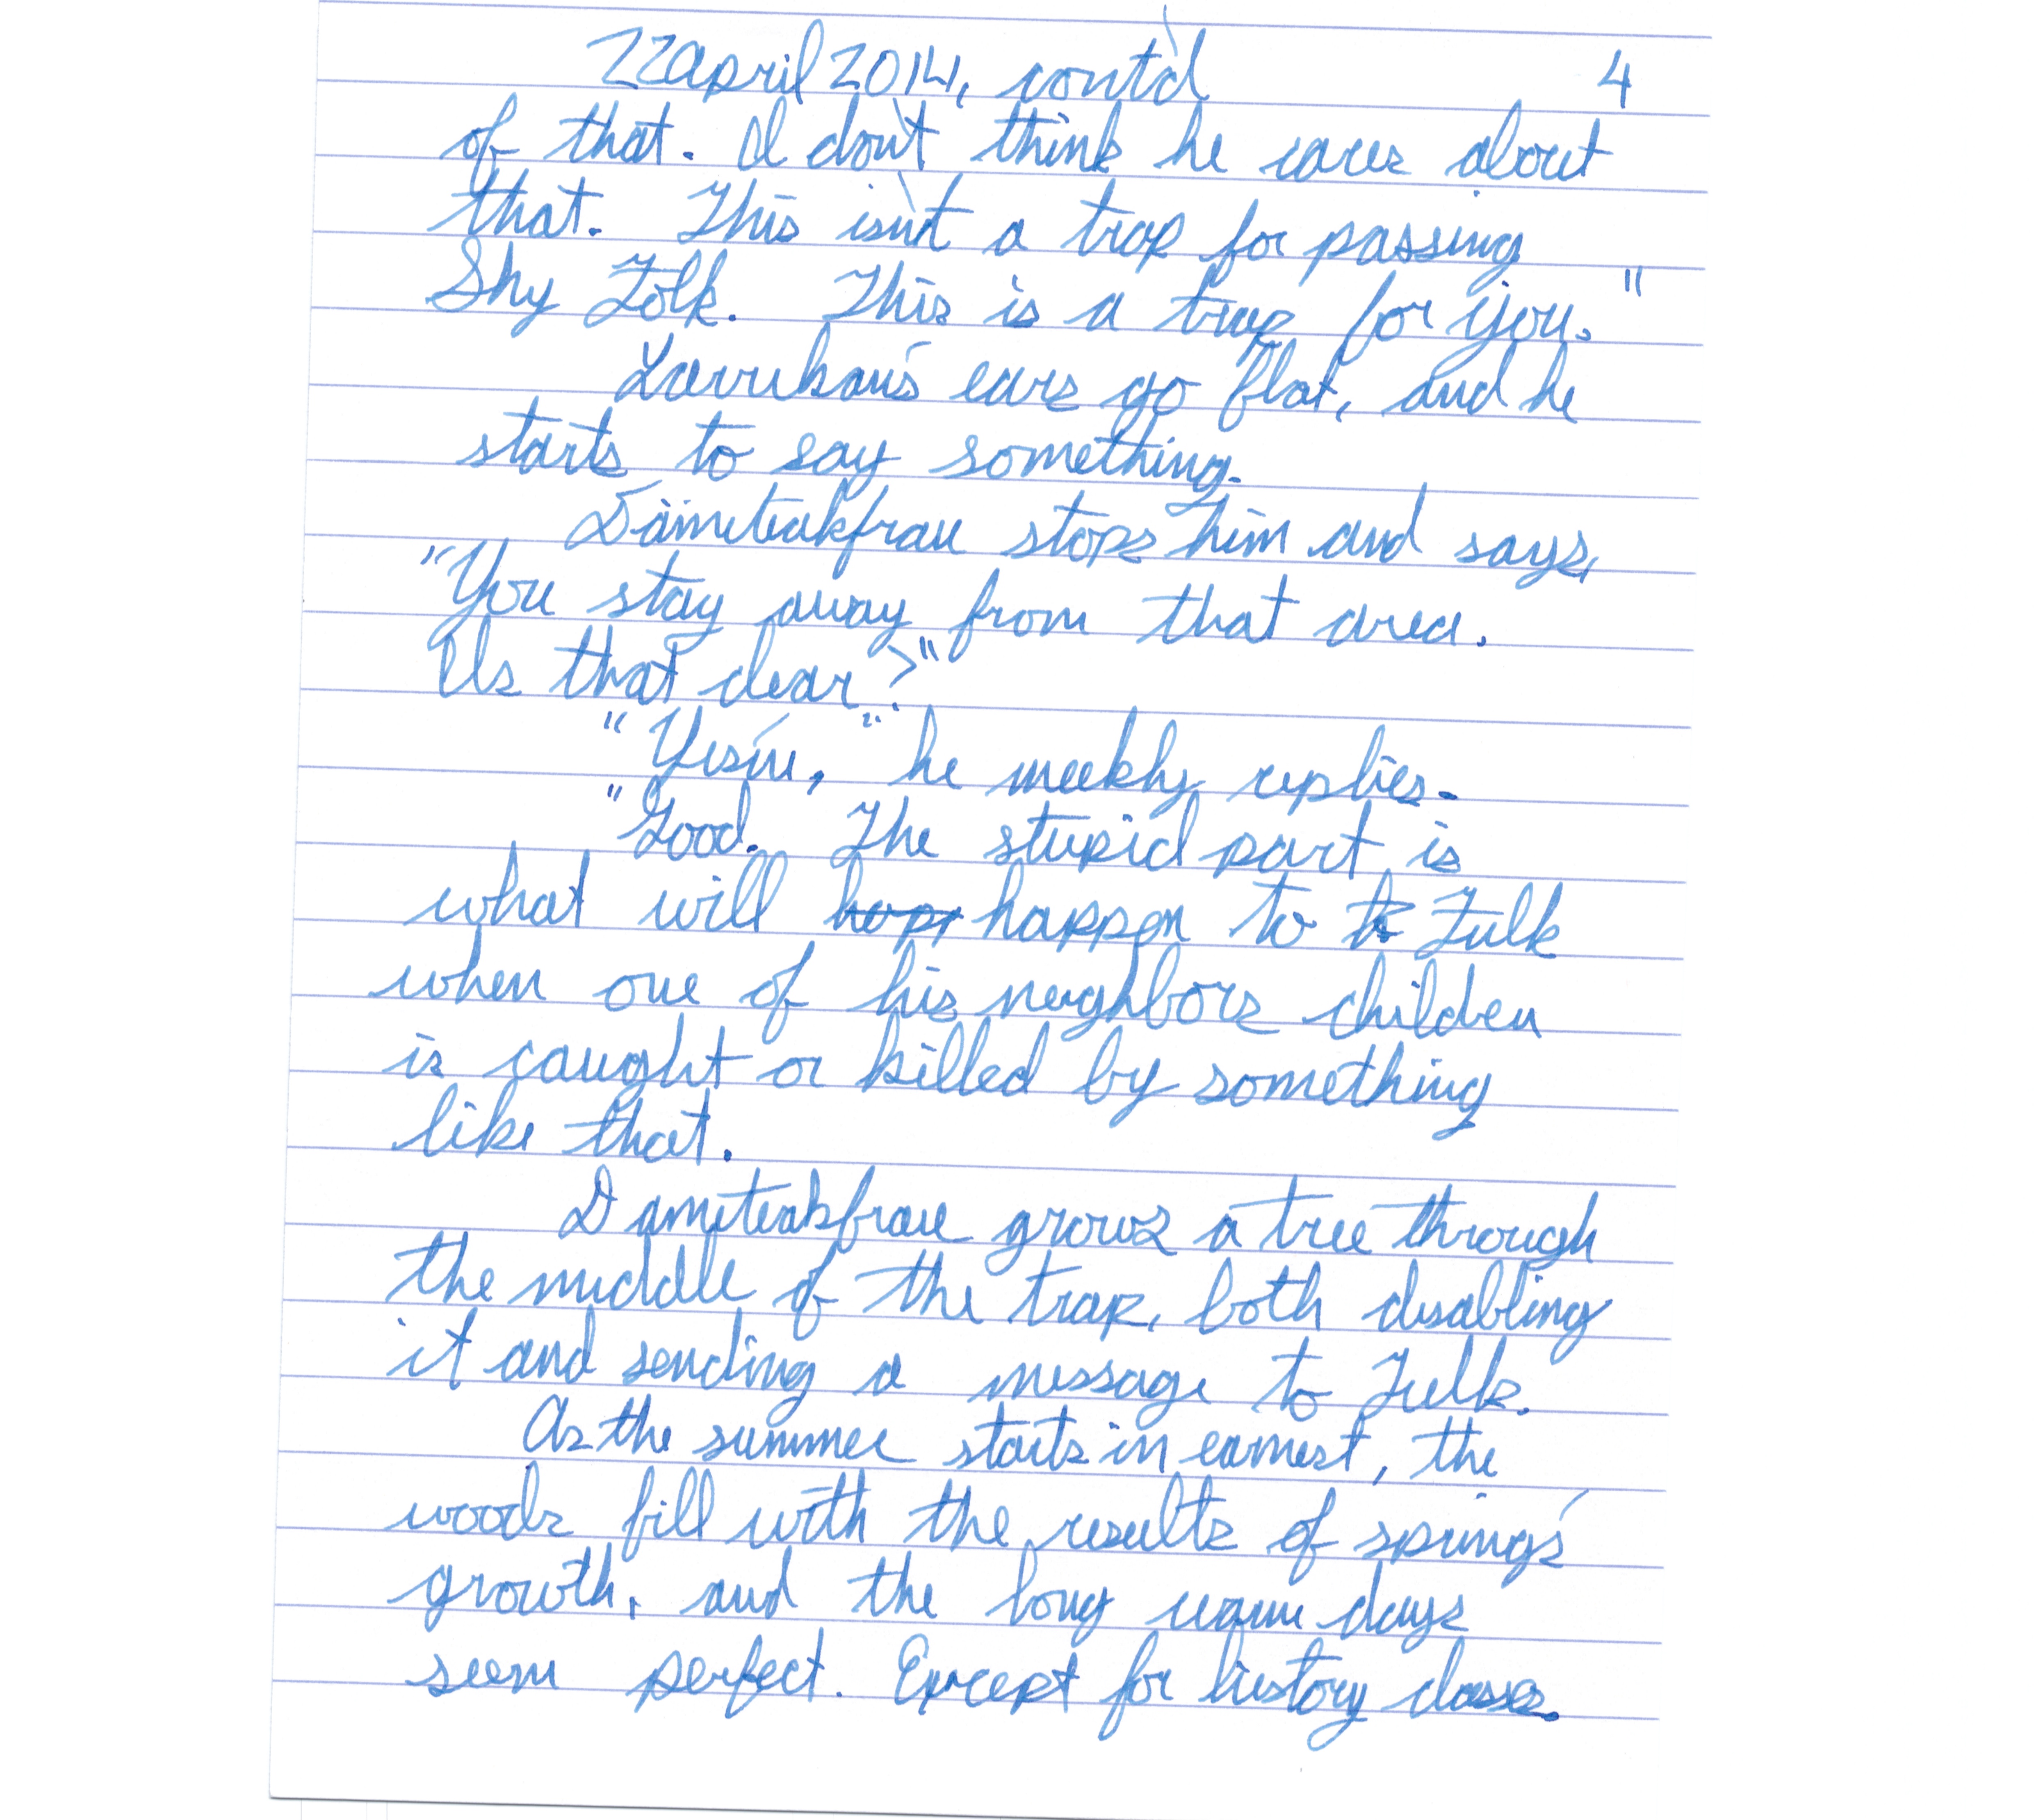 22 April 2014, cont'd 4
of that. I don't think he cares about
that. This isn't a trap for passing
Shy Folk. This is a trap for you."
ears go flat, and he
starts to say something.
Damiteakfrau stops him and says,
"You stay away from that area.
Is that clear?"
"Yesir," he meekly replies.
"Good. The stupid part is
what will hap happen to to Fulk
when one of his neighbors children
is caught or killed by something
like that.
Damiteakfrau grows a tree through
the middle of the trap, both disabling
it and sending a message to Fulk.
As the summer starts in earnest, the
woods fill with the results of spring's
growth, and the long warm days
seem perfect. Except for history classes.